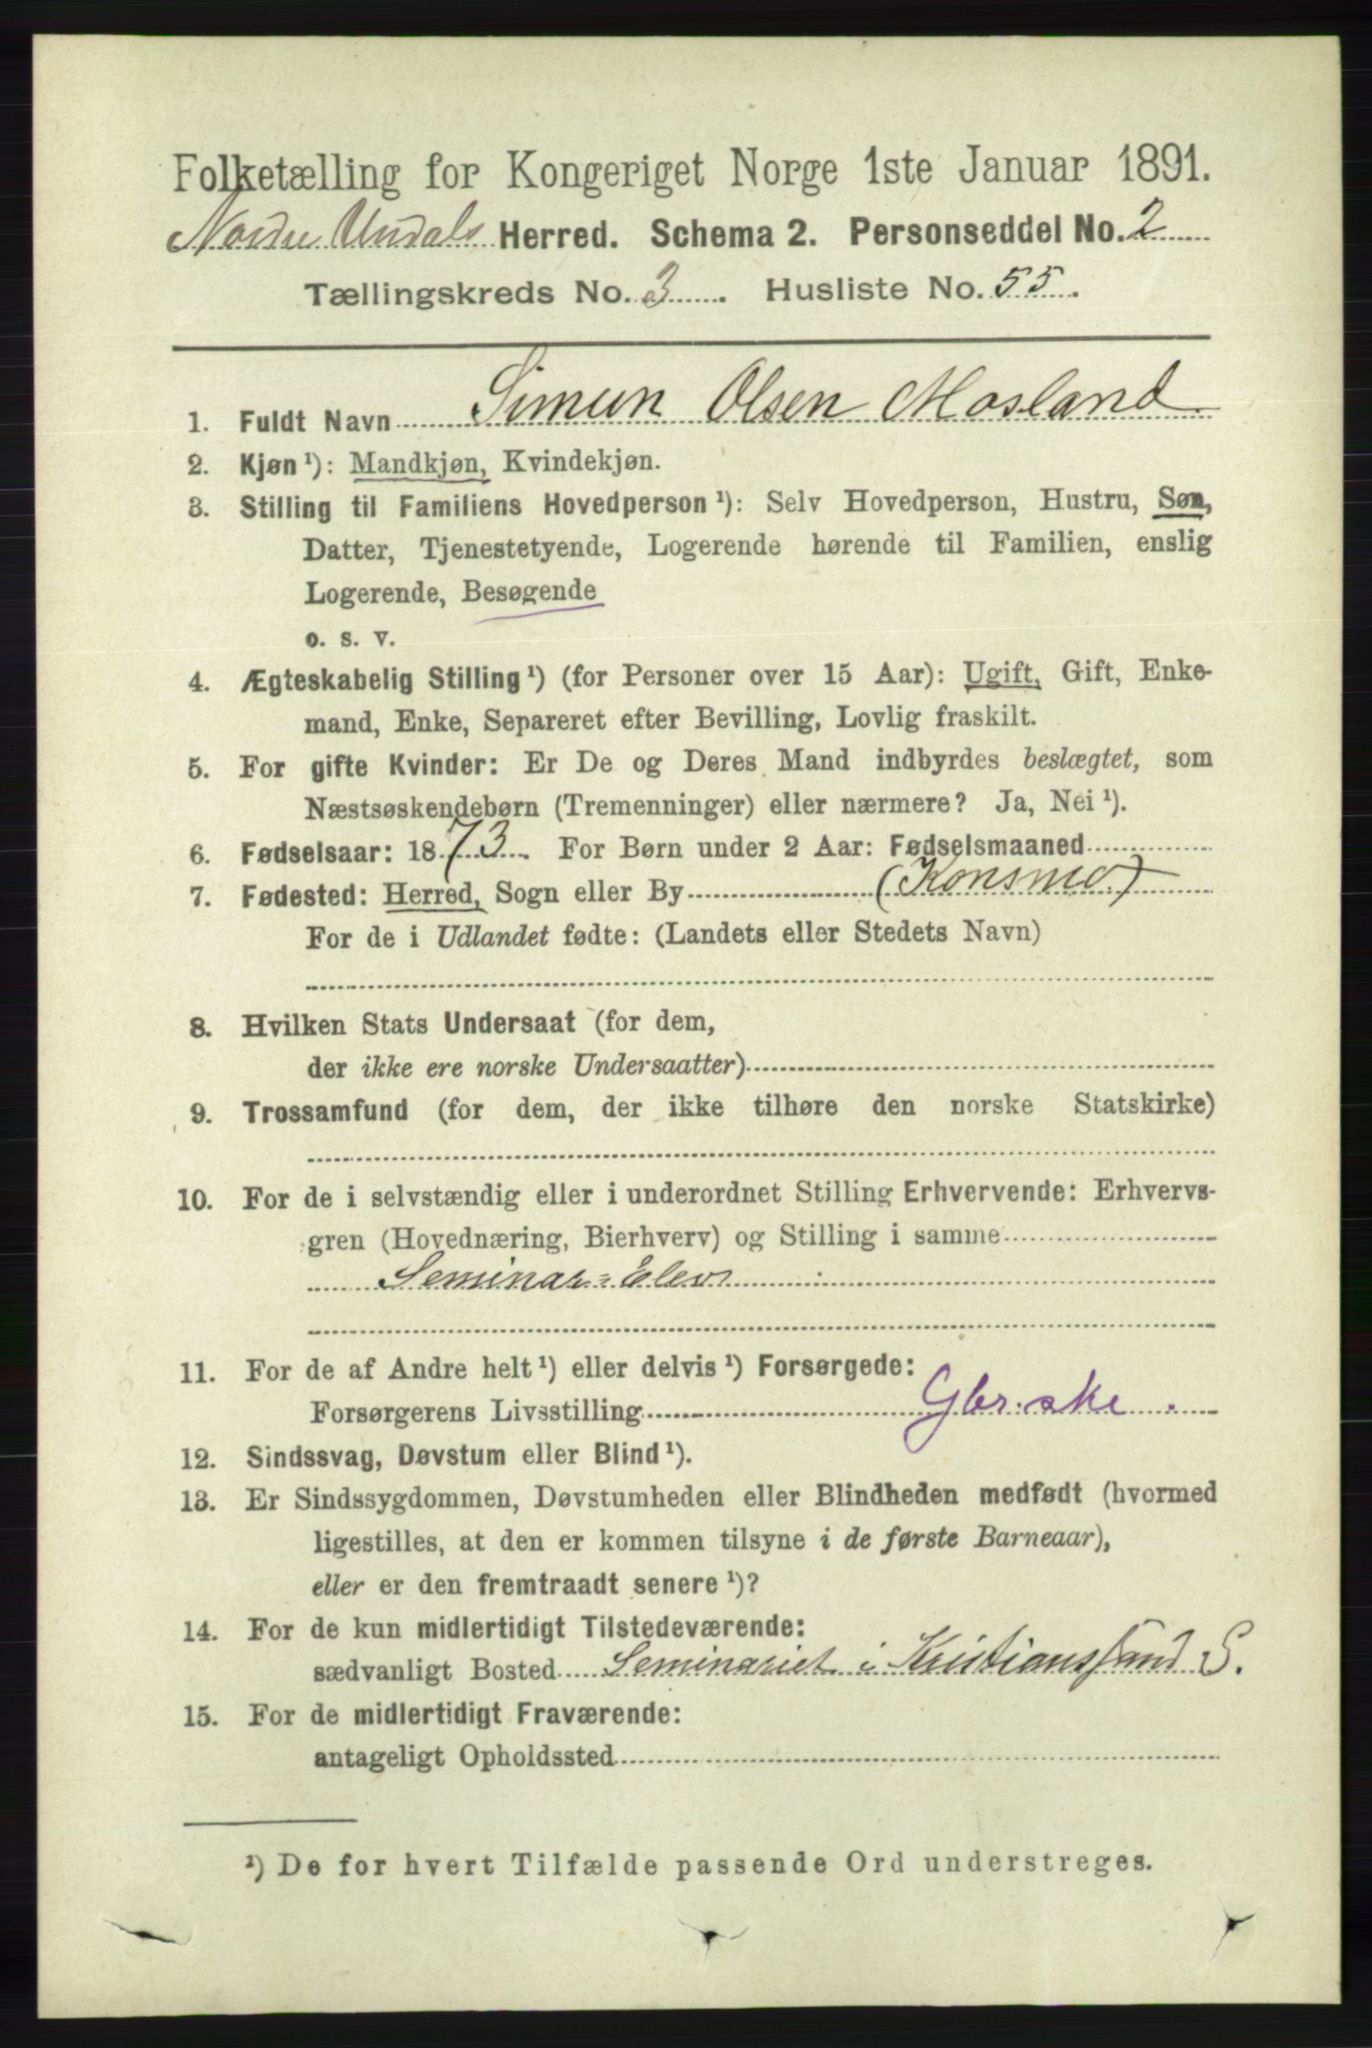 Folketælling for Kongeriget Norge 1ste Januar 1891.
Nordre Undals Herred. Schema 2. Personseddel No. 2
Tællingskreds No. 3. Husliste No. 55.
1. Fuldt Navn Simun Olsen Mosland
2. Kjøn ¹): Mandkjøn, Kvindekjøn.
3. Stilling til Familiens Hovedperson ¹): Selv Hovedperson, Hustru, Søn,
Datter, Tjenestetyende, Logerende hørende til Familien, enslig
Logerende, Besøgende
o. s. v.
4. Ægteskabelig Stilling ¹) (for Personer over 15 Aar): Ugift, Gift, Enke-
mand, Enke, Separeret efter Bevilling, Lovlig fraskilt.
5. For gifte Kvinder: Er De og Deres Mand indbyrdes beslægtet, som
Næstsøskendebørn (Tremenninger) eller nærmere? Ja, Nei ¹).
6. Fødselsaar: 1873. For Børn under 2 Aar: Fødselsmaaned
7. Fødested: Herred, Sogn eller By (Konsmo)
For de i Udlandet fødte: (Landets eller Stedets Navn)
8. Hvilken Stats Undersaat (for dem,
der ikke ere norske Undersaatter)
9. Trossamfund (for dem, der ikke tilhøre den norske Statskirke)
10. For de i selvstændig eller i underordnet Stilling Erhvervende: Erhvervs-
gren (Hovednæring, Bierhverv) og Stilling i samme
Seminar=Elev
11. For de af Andre helt ¹) eller delvis ¹) Forsørgede:
Forsørgerens Livsstilling Gbr. ske.
12. Sindssvag, Døvstum eller Blind ¹).
13. Er Sindssygdommen, Døvstumheden eller Blindheden medfødt (hvormed
ligestilles, at den er kommen tilsyne i de første Barneaar),
eller er den fremtraadt senere ¹)?
14. For de kun midlertidigt Tilstedeværende:
sædvanligt Bosted Seminariet i Kristianssand S.
15. For de midlertidigt Fraværende:
antageligt Opholdssted
¹) De for hvert Tilfælde passende Ord understreges.